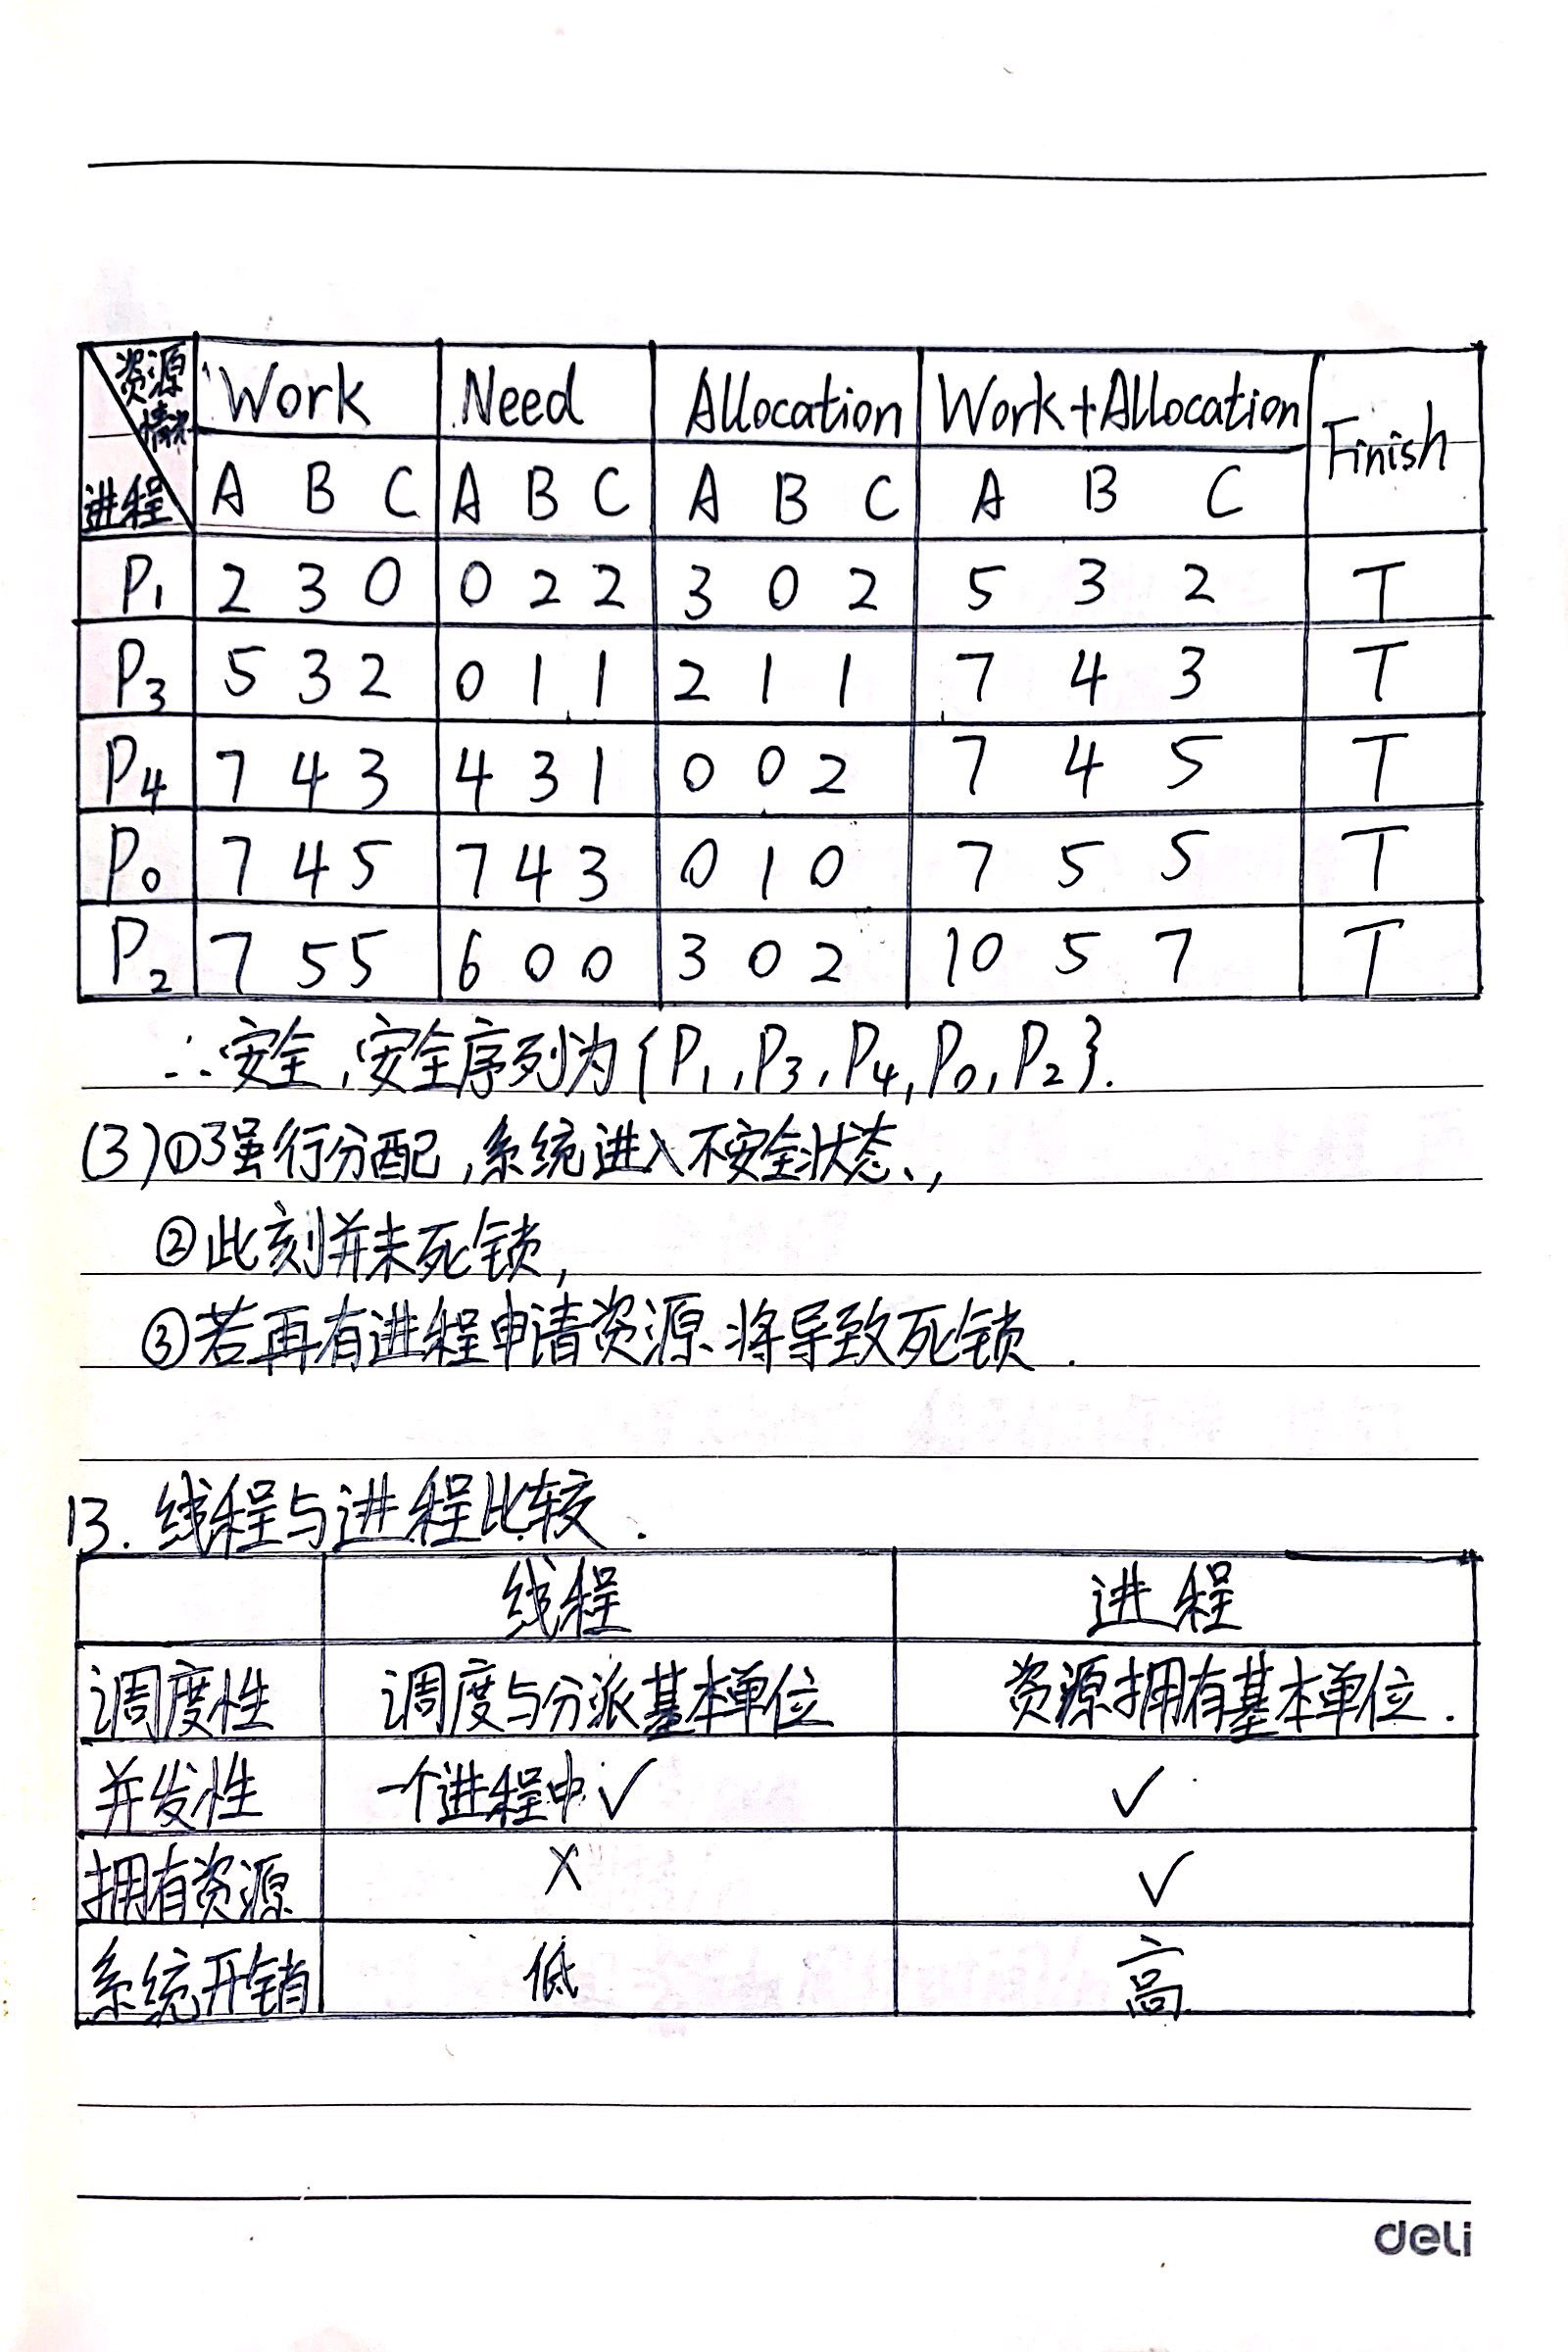 资源情况 Work Need Allocation Work+Allocation Finish
进程 A B C A B C A B C A B C
P1 2 3 0 0 2 2 3 0 2 5 3 2 T
P3 5 3 2 0 1 1 2 1 1 7 4 3 T
P4 7 4 3 4 3 1 0 0 2 7 4 5 T
P0 7 4 5 7 4 3 0 1 0 7 5 5 T
P2 7 5 5 6 0 0 3 0 2 10 5 7 T
∴安全,安全序列为{P1,P3,P4,P0,P2}.
(3)①强行分配,系统进入不安全状态,
②此刻并未死锁,
③若再有进程申请资源、将导致死锁.
13.线程与进程比较.
线程 进程
调度性 调度与分派基本单位 资源拥有基本单位.
并发性 一个进程中✓ ✓
拥有资源 × ✓
系统开销 低 高
deli